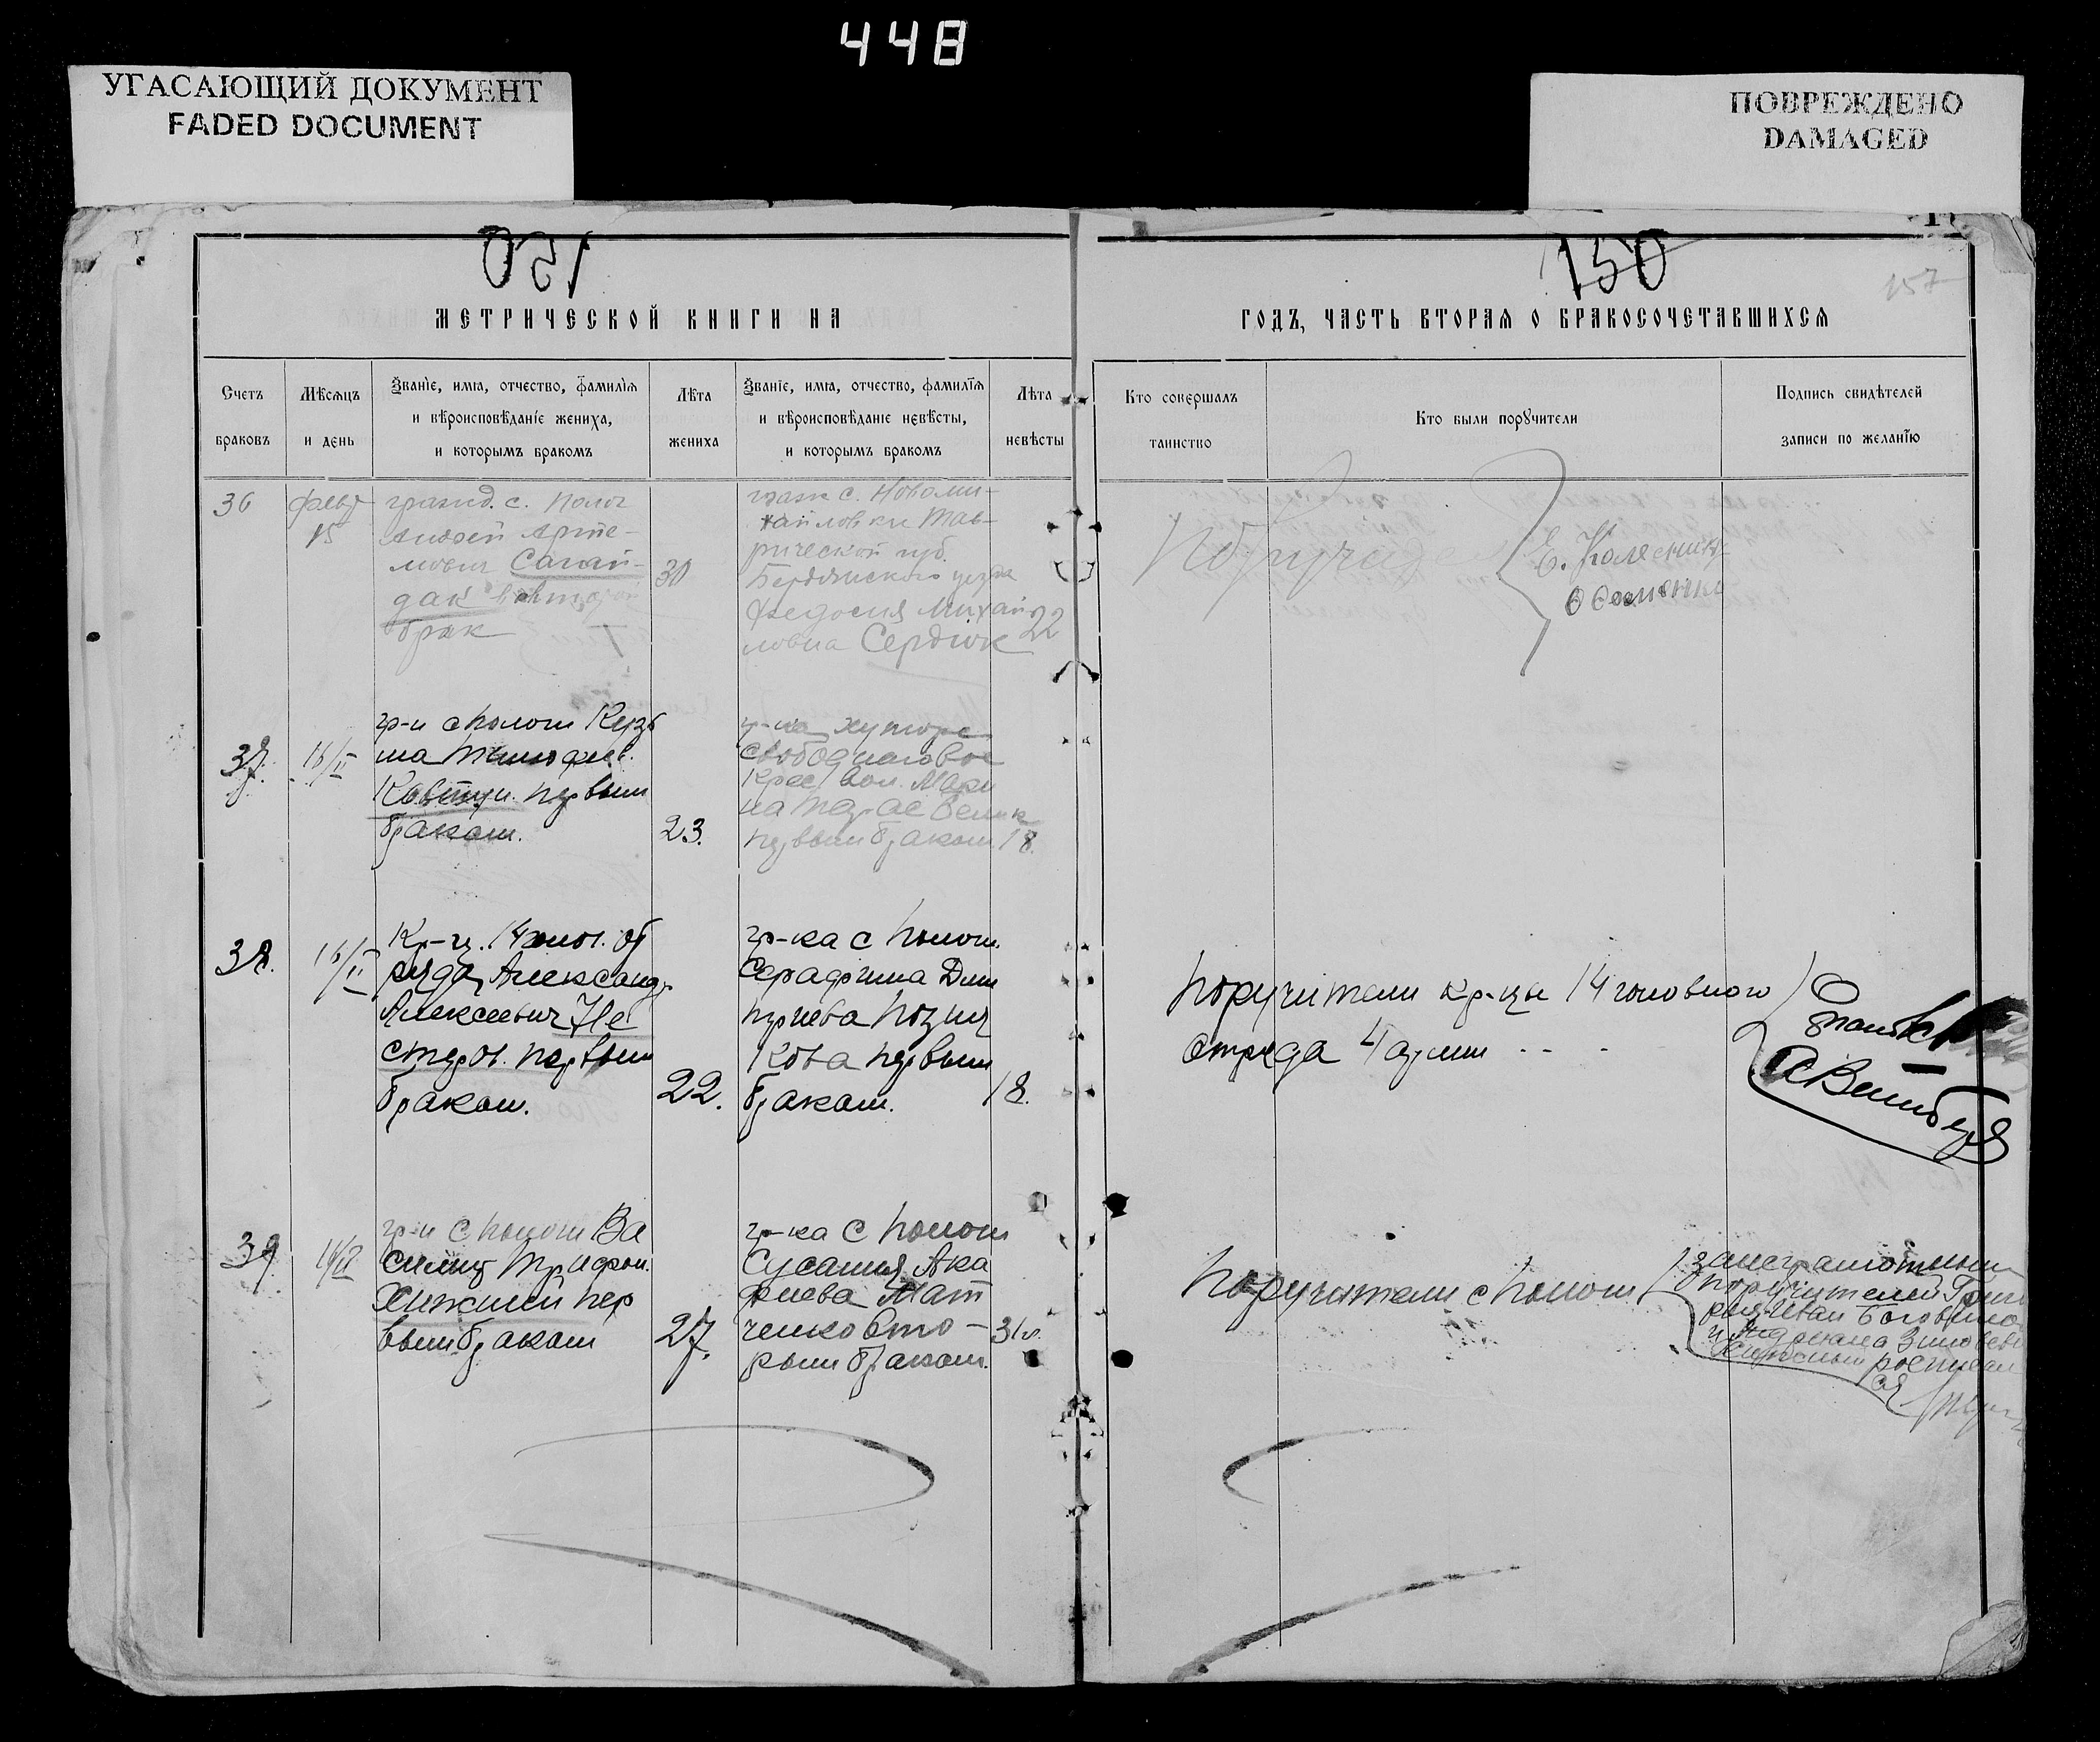 448
УГАСАЮЩИЙ ДОКУМЕНТ
FADED DOCUMENT
ПОВРЕЖДЕНО
DAMAGED
150
150
157
МЕТРИЧЕСКОЙ КНИГИ НА
ГОДЪ, ЧАСТЬ ВТОРАЯ О БРАКОСОЧЕТАВШИХСЯ
Счетъ
браковъ
Мѣсяцъ
и день
Званіе, имя, отчество, фамилія
и вѣроисповѣданіе жениха,
и которымъ бракомъ
Лѣта
жениха
Званіе, имя, отчество, фамилія
и вѣроисповѣданіе невѣсты,
и которымъ бракомъ
Лѣта
невѣсты
Кто совершалъ
таинство
Кто были поручители
Подпись свидѣтелей
записи по желанію
36
февр
15
гражд. с. Полог
Андрей Арте-
мович Сагай-
дак
брак
30
граж с. Новоми-
хайловки Тав-
рической губ.
Бердянского уезда
Федосия Михай
ловна Сердюк
22
Е. Колесник
37.
16/II
гр-н с Пологи Кузь
ма Тимофеев.
Ковтун. первым
браком.
23.
гр-ка хутора
вол. Мари
первым браком
18.
38.
16/II
Кр-ц. 14 голов. от
ряда, Александр
Алексеевич Не
стеров. первым
браком.
22.
гр-ка с Полог.
Серафима Дми
триева Позня
кова первым
браком.
18.
Поручители кр-цы 14 головного
отряда 4 армии
39.
гр-н с Полог Ва
силий Трифон.
Хижний пер
вым браком
27.
гр-ка с Полог
Сусания Ака
киева Мат
ченко вто-
рым браком.
31
Поручители с Полог
за неграмотных
поручителей
Иван
расписал
ся